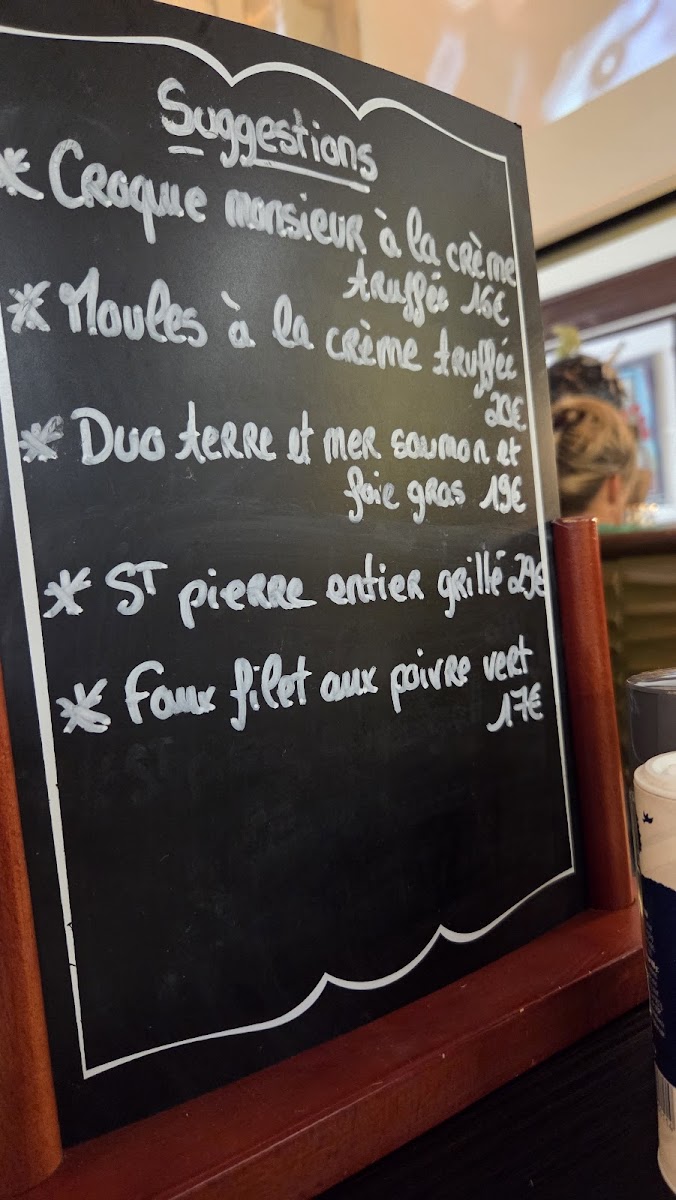 Suggestions
* Croque monsieur à la crème
truffée 16€
* Moules à la crème truffée
20€
* Duo terre et mer saumon et
foie gras 19€
* ST pierre entier grillé 29€
* Faux filet aux poivre vert
17€